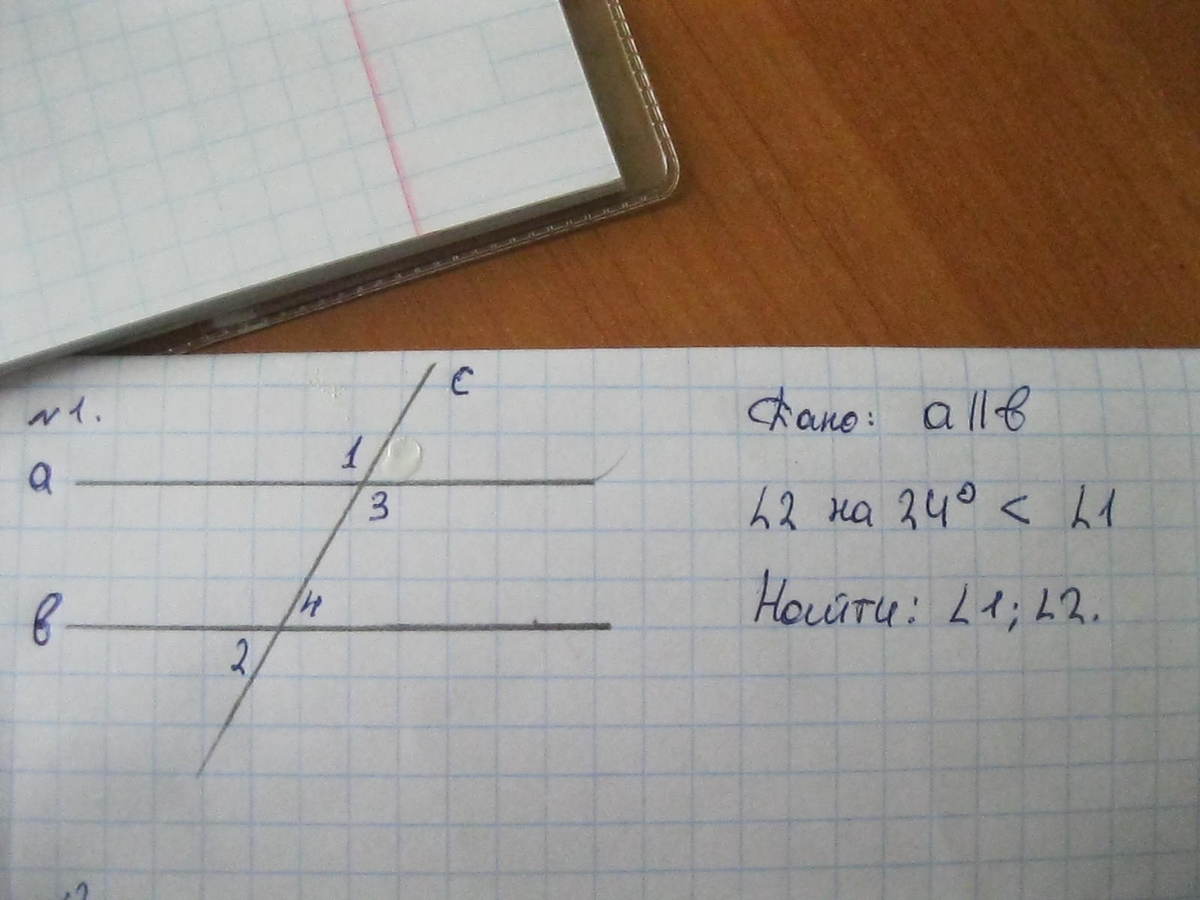 №1.
c
1
a
3
4
в
2
Дано: a||в
∠2 на 24° < ∠1
Найти: ∠1; ∠2.